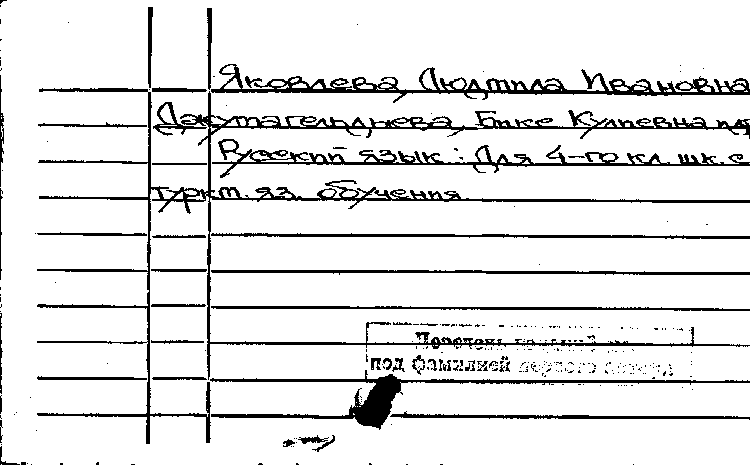 Яковлева, Людмила Ивановна
Джумагельдыева, Бике Кулиевна
Русский язык: Для 4-го кл. шк. с
туркм. яз. обучения.
Перечень изданий
под фамилией первого автора